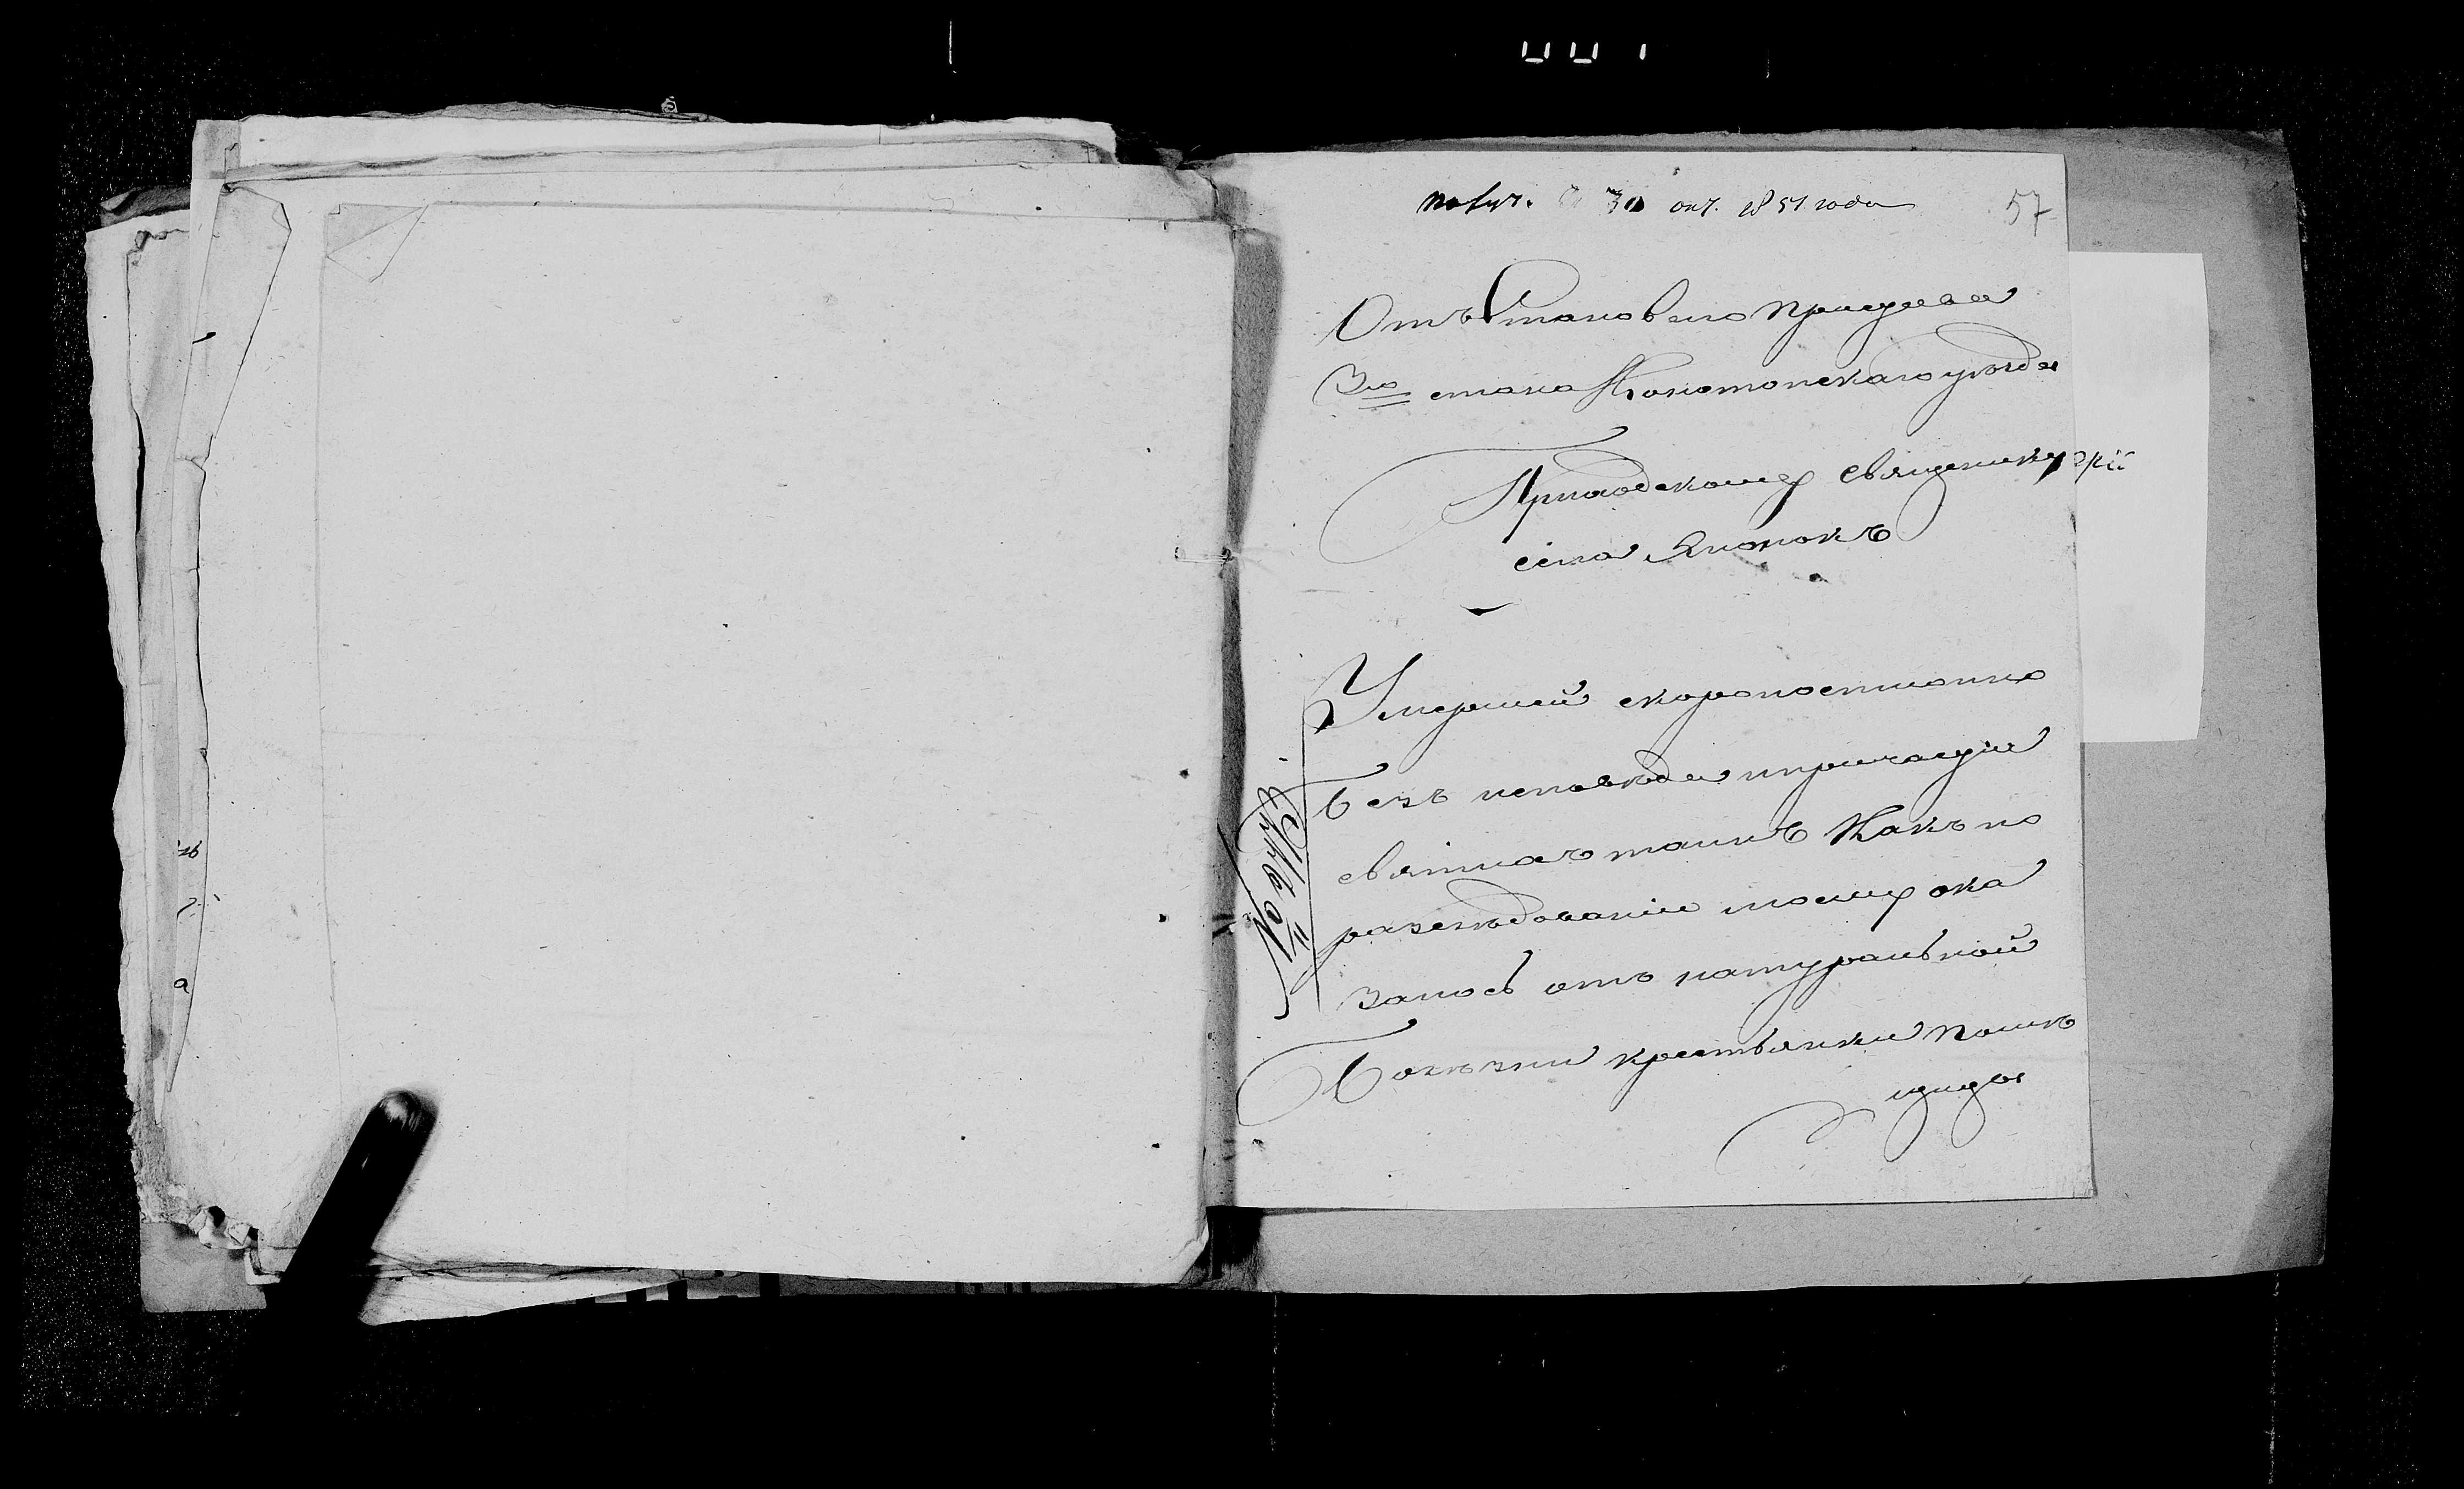 Получ. 30 окт. 1851 года
57
Отъ Становаго Пристава
3го стана Конотопскаго уѣзда
Приходскому Священнику
села
Умершей скоропостижно
безъ исповѣди и причастія
святыхъ таинъ Какъ по
разслѣдованіи моему ока
залось отъ натуральной
болѣзни крестьянки помѣ
щицы